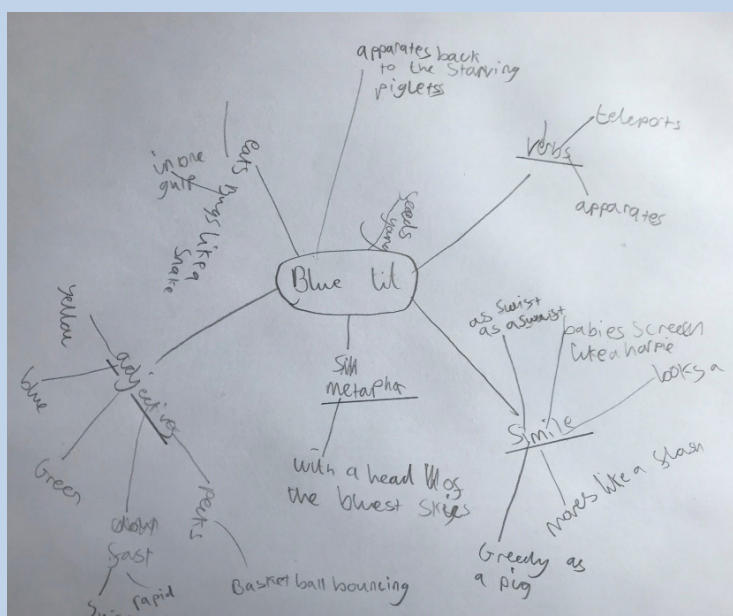 apparates back
to the starving
piglets
eats
bugs like a
snake
in one
gulf
seeds
young
Blue tit
verbs
teleports
apparates
yellow
blue
Green
adjectives
fast
rapid
pecks
Basket ball bouncing
metaphor
with a head of
the bluest skies
Simile
as swist
as a swist
babies screen
like a harpie
looks a
moves like a slash
Greedy as
a pig